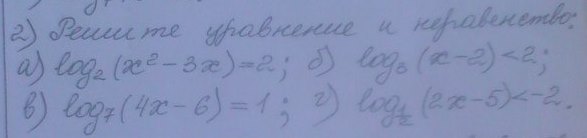 2) Решите уравнение и неравенство:
а) log₂(x²-3x)=2; б) log₃(x-2)<2;
в) log₇(4x-6)=1; г) log½(2x-5)<-2.